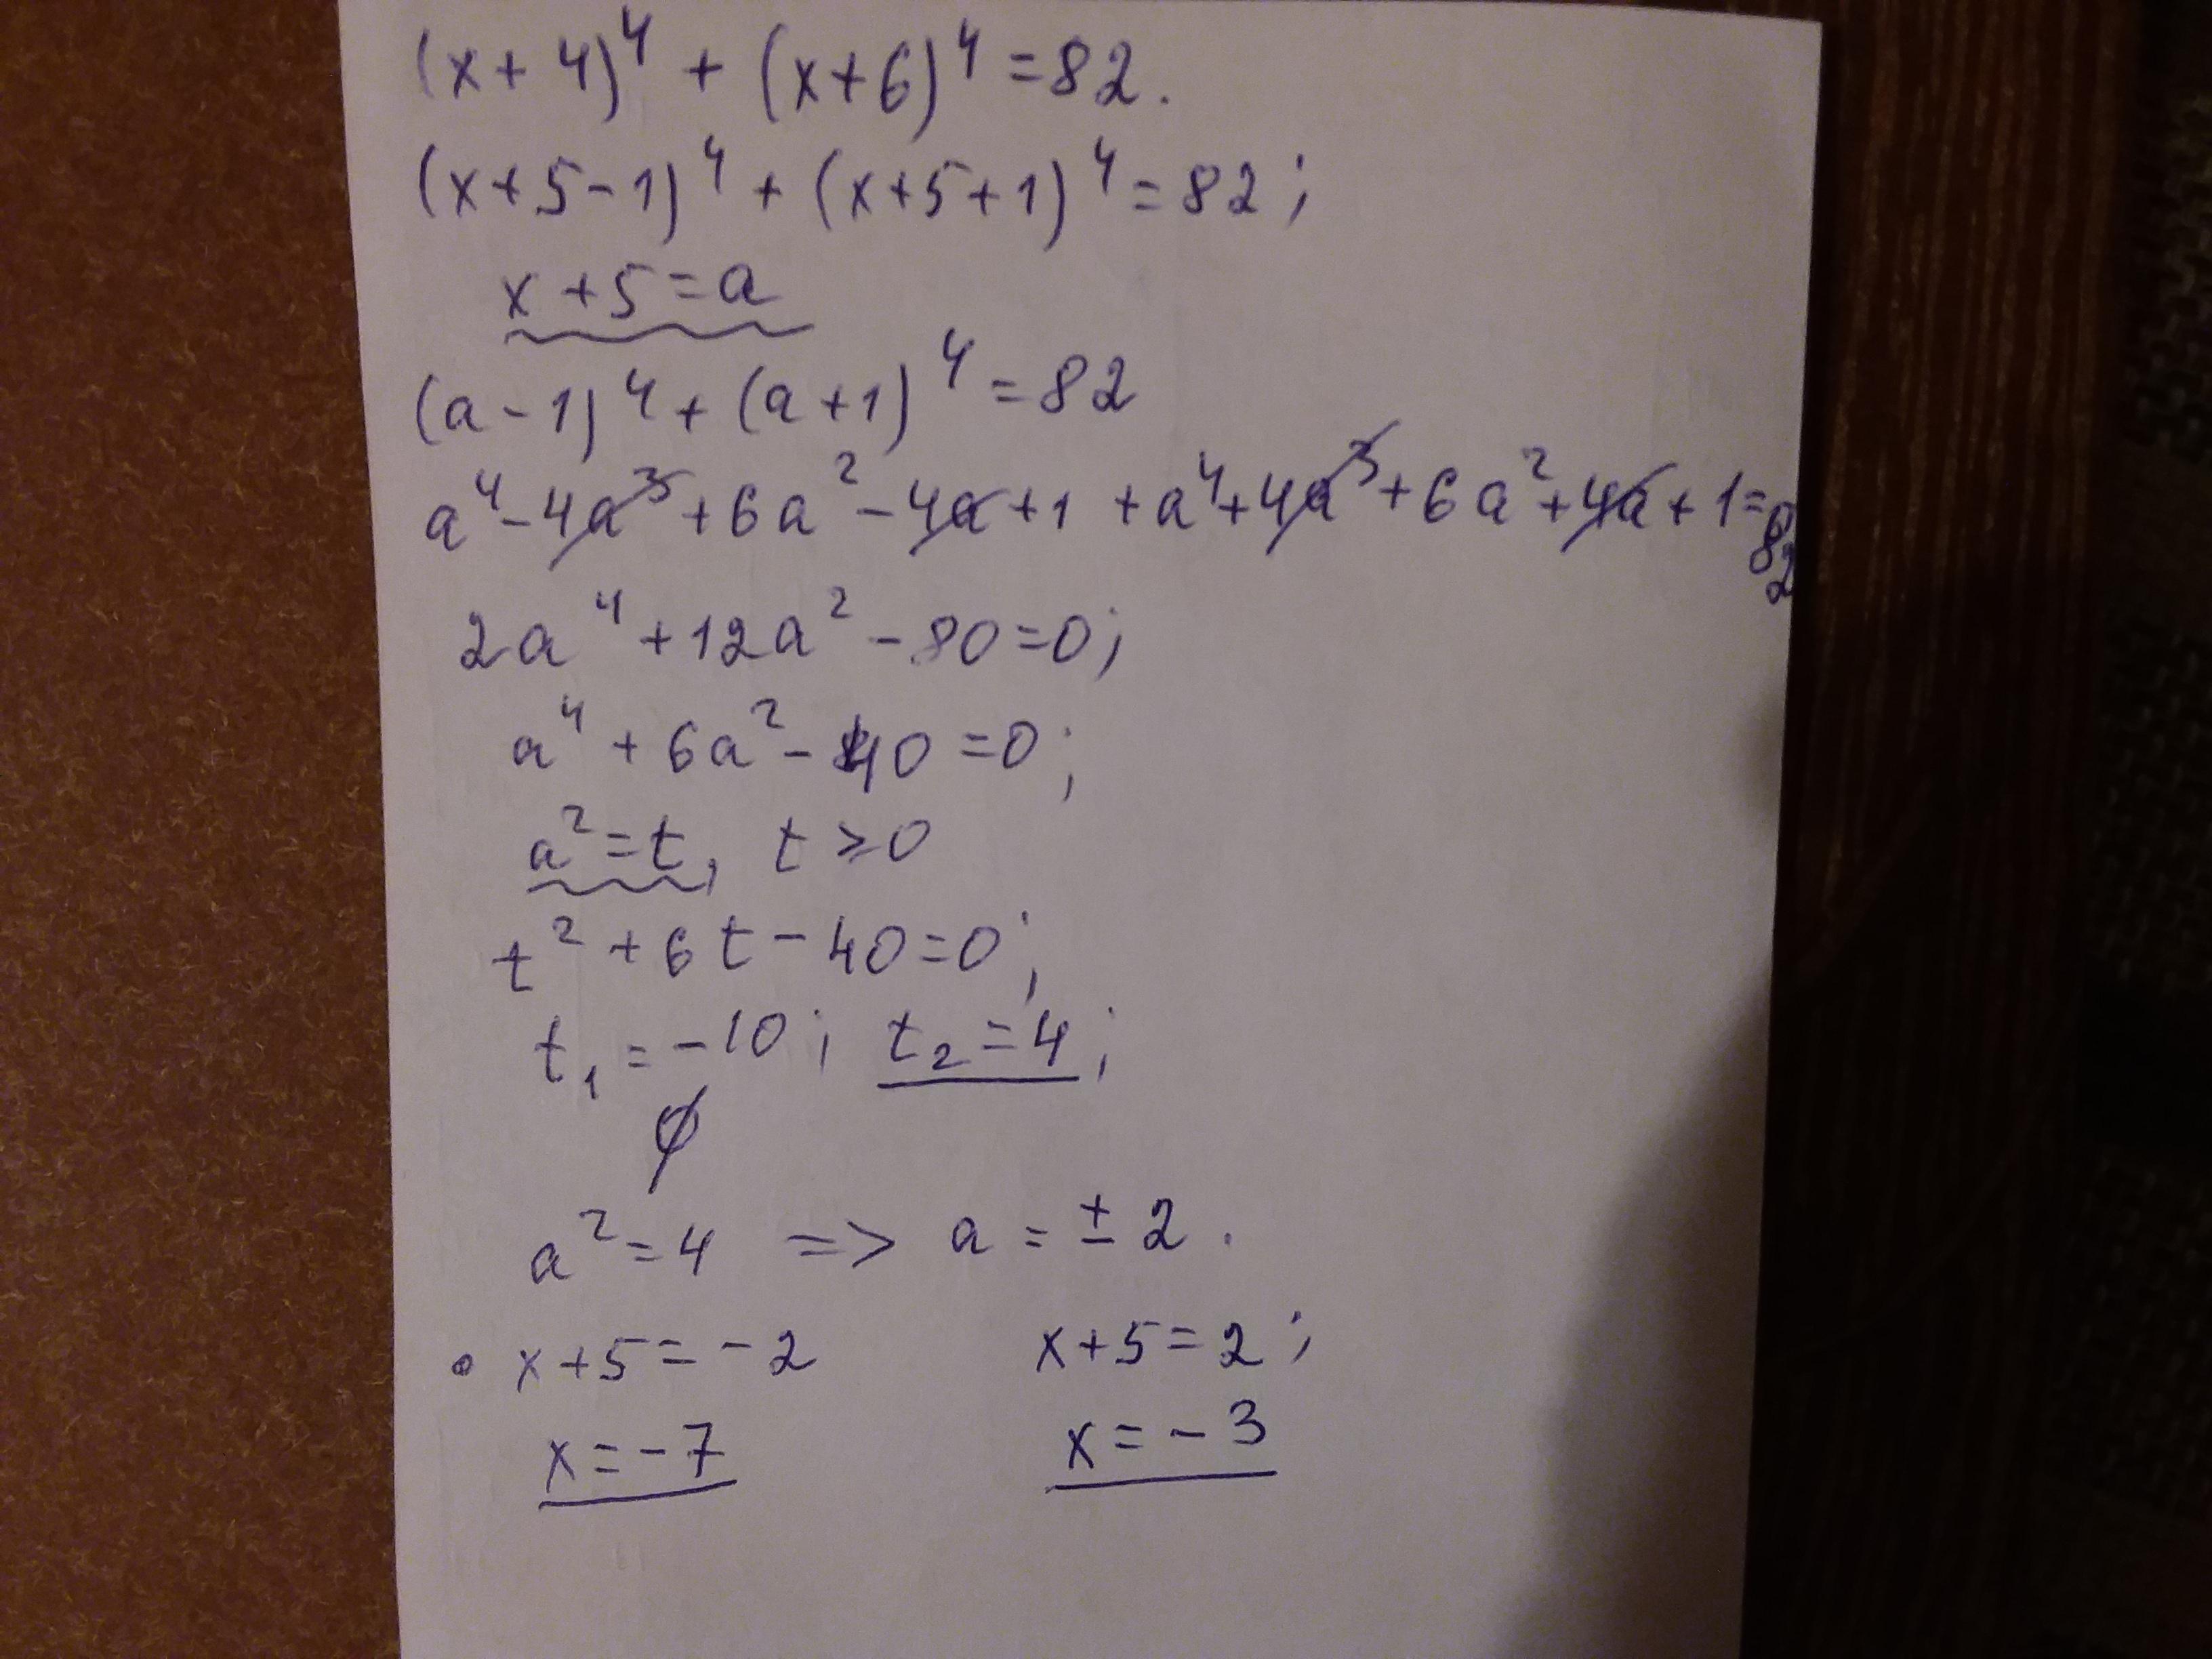 (x+4)⁴ + (x+6)⁴ = 82.
(x+5-1)⁴ + (x+5+1)⁴ = 82;
x+5=a
(a-1)⁴ + (a+1)⁴ = 82
a⁴-4a³+6a²-4a+1+a⁴+4a³+6a²+4a+1=82
2a⁴+12a²-80=0;
a⁴+6a²-40=0;
a²=t, t≥0
t²+6t-40=0;
t₁=-10; t₂=4;
∅
a²=4 => a=±2.
• x+5=-2 x+5=2;
x=-7 x=-3